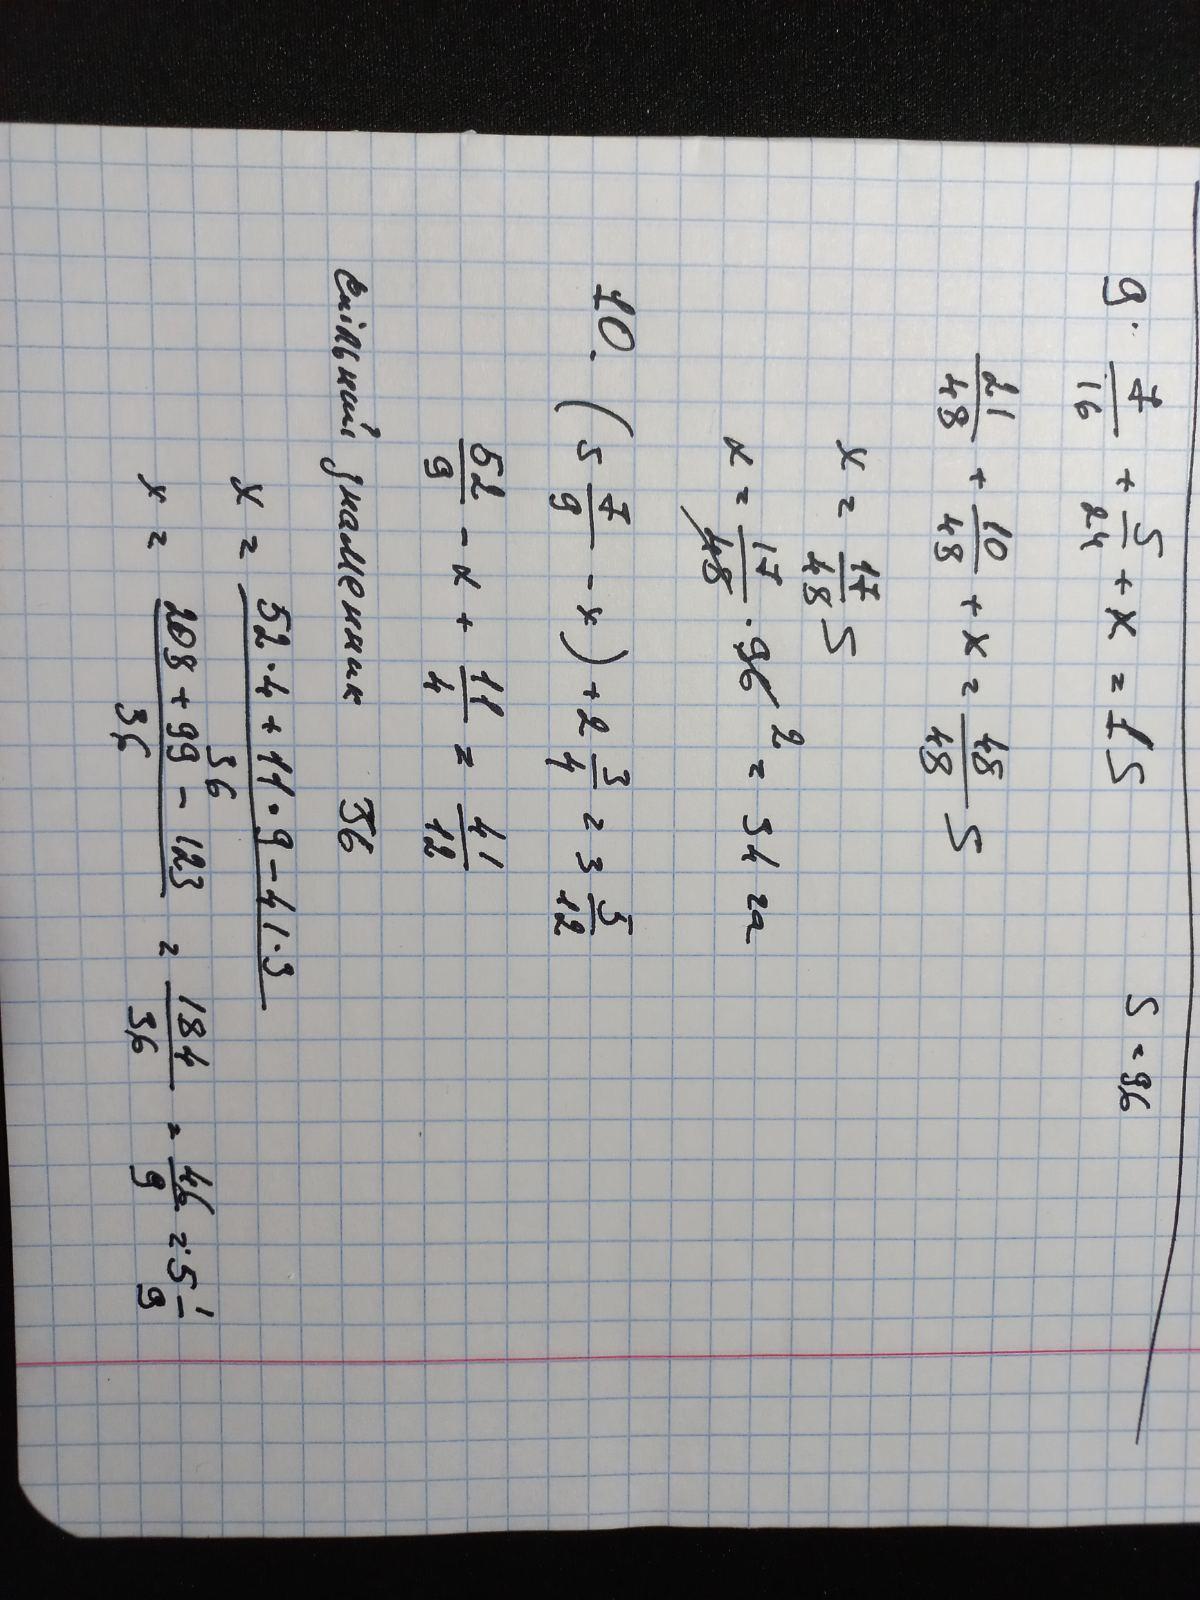 9. 7/16 + 5/24 + x = 1S S = 96
21/48 + 10/48 + x = 48/48 S
x = 17/48 S
x = 17/48 · 96 2 = 34 га
10. (5 7/9 - x) + 2 3/4 = 3 5/12
52/9 - x + 11/4 = 41/12
Спільний знаменник 36
x = 52·4 + 11·9 - 41·3 / 36
x = 208 + 99 - 123 / 36 = 184/36 = 46/9 = 5 1/9